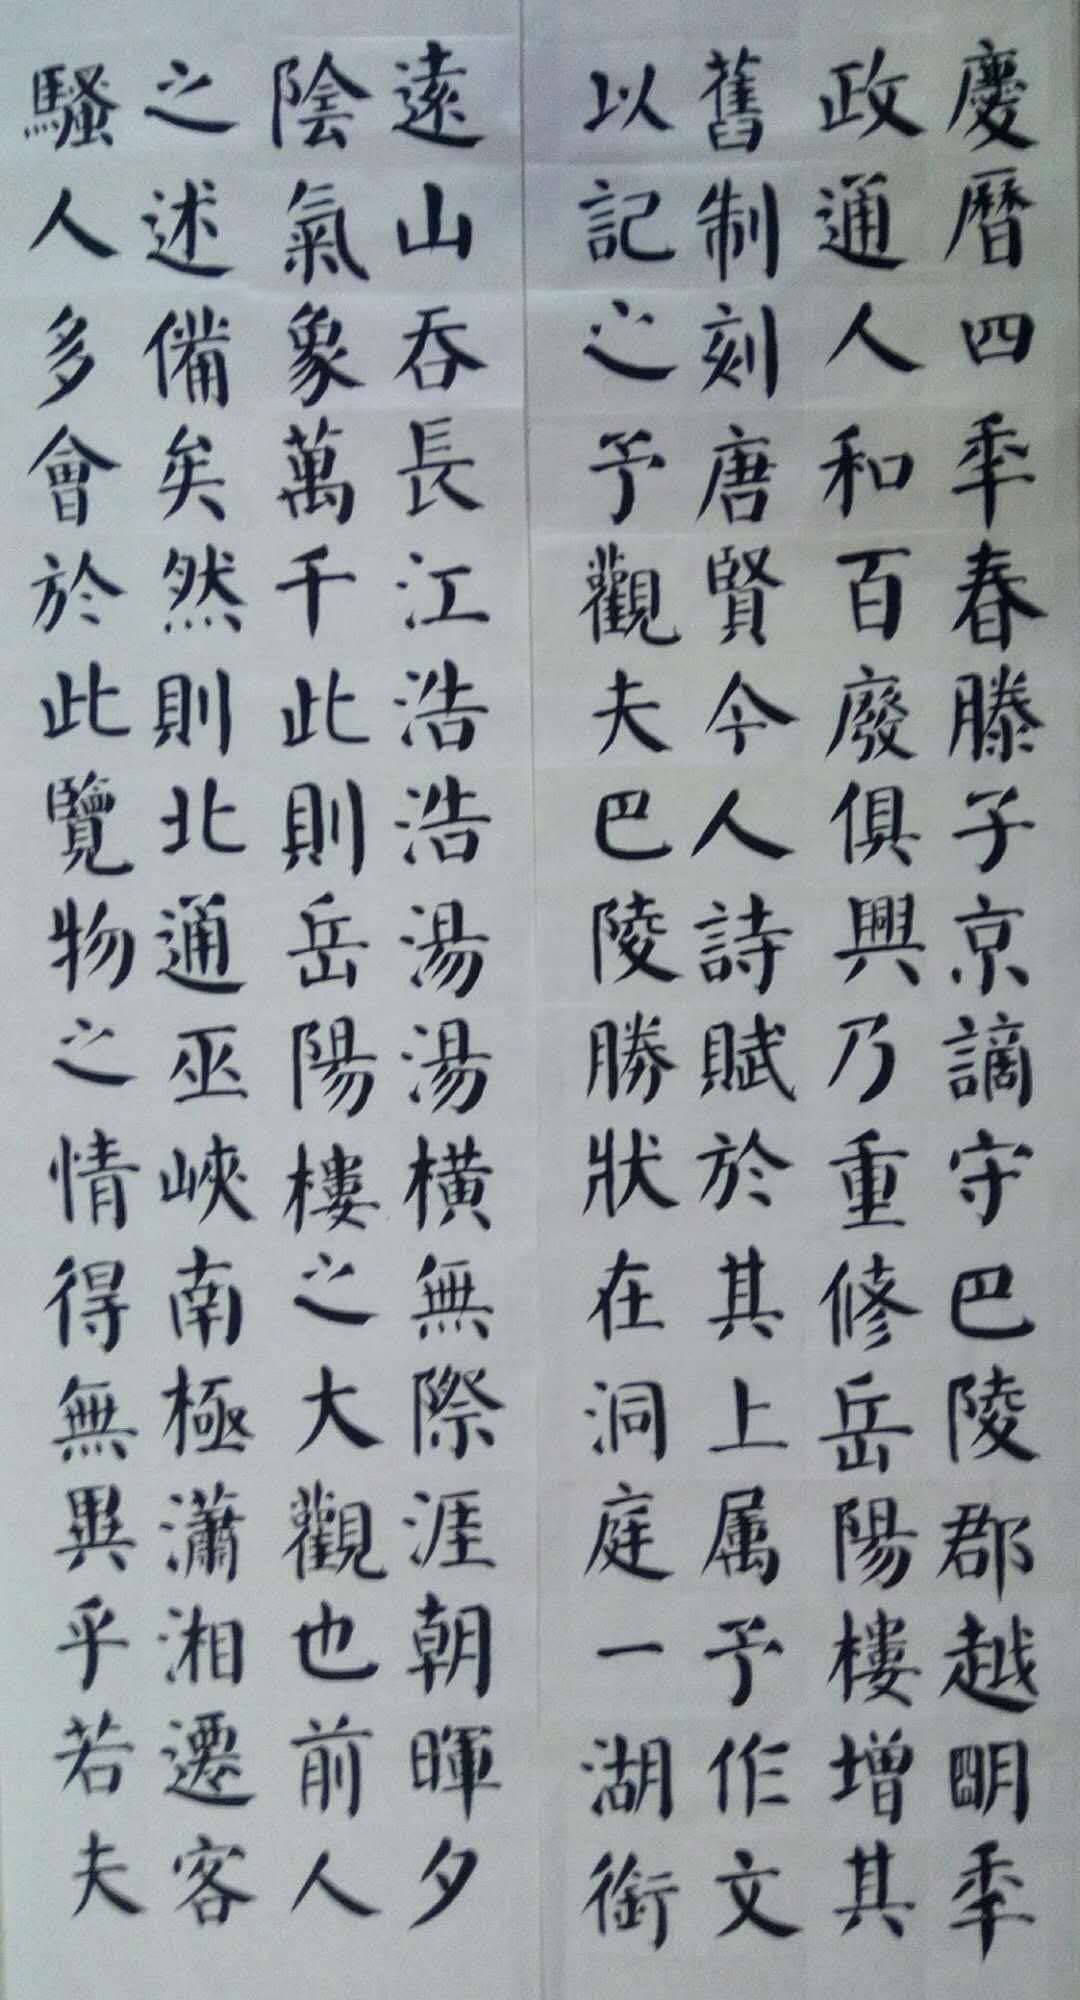 慶曆四秊春滕子京謫守巴陵郡越明秊
政通人和百廢俱興乃重修岳陽樓增其
舊制刻唐賢今人詩賦於其上属予作文
以記之予觀夫巴陵勝狀在洞庭一湖銜
遠山吞長江浩浩湯湯橫無際涯朝暉夕
陰氣象萬千此則岳陽樓之大觀也前人
之述備矣然則北通巫峽南極瀟湘遷客
騷人多會於此覽物之情得無異乎若夫